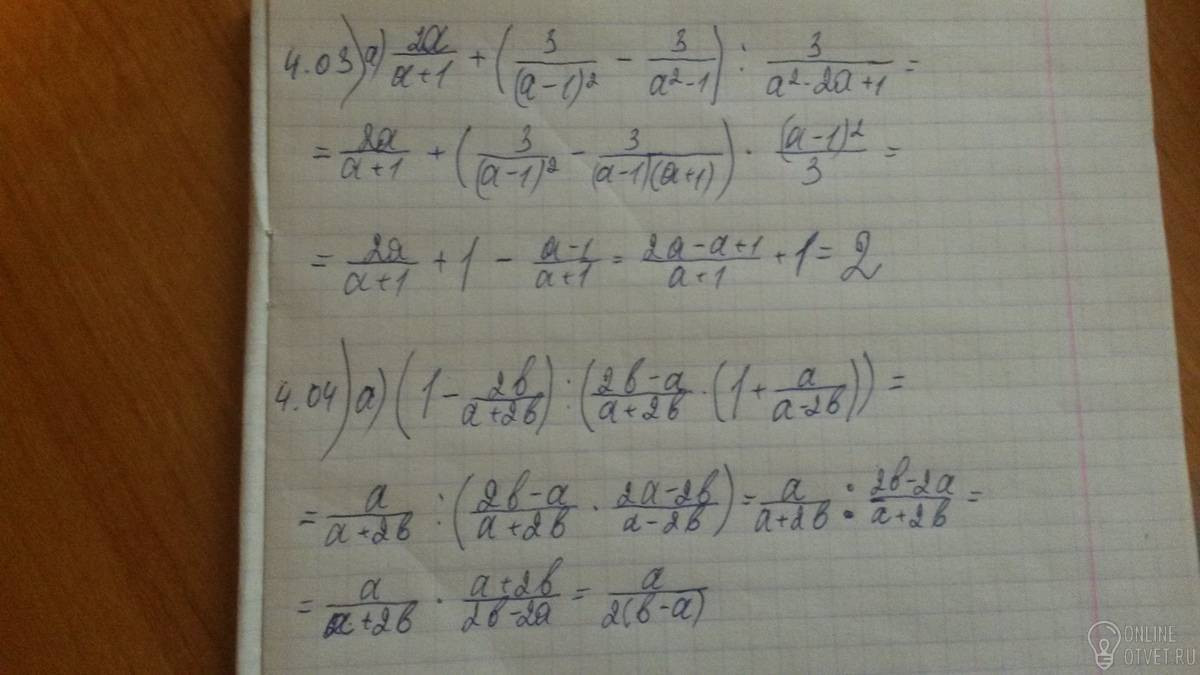 4.03) а) 2a/(a+1) + (3/(a-1)² - 3/(a²-1)) : 3/(a²-2a+1) =
= 2a/(a+1) + (3/(a-1)² - 3/((a-1)(a+1))) · (a-1)²/3 =
= 2a/(a+1) + 1 - (a-1)/(a+1) = (2a-a+1)/(a+1) + 1 = 2
4.04) а) (1 - 2в/(a+2в)) : ((2в-a)/(a+2в) · (1 + a/(a-2в))) =
= a/(a+2в) : ((2в-a)/(a+2в) · (2a-2в)/(a-2в)) = a/(a+2в) : (2в-2a)/(a+2в) =
= a/(a+2в) · (a+2в)/(2в-2a) = a/(2(в-a))
ONLINE
OTVET.RU